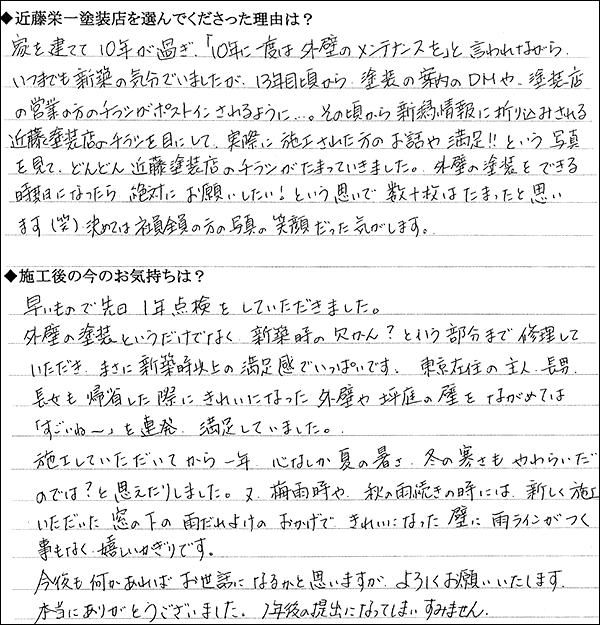 ◆近藤栄一塗装店を選んでくださった理由は？
家を建てて10年が過ぎ、「10年に一度は外壁のメンテナンスを」と言われながら、
いつまでも新築の気分でいましたが、13年目頃から、塗装の案内のDMや、塗装店
の営業の方のチラシがポストインされるように…。その頃から新潟情報に折り込みされる
近藤塗装店のチラシを目にして、実際に施工された方のお話や満足!!という写真
を見て、どんどん近藤塗装店のチラシがたまっていきました。外壁の塗装をできる
時期になったら、絶対にお願いしたい！という思いで数十枚はたまったと思い
ます(笑)決めては社員全員の方の写真の笑顔だった気がします。
◆施工後の今のお気持ちは？
早いもので先日1年点検をしていただきました。
外壁の塗装というだけでなく、新築時の欠かん？という部分まで修理して
いただき、まさに新築時以上の満足感でいっぱいです。東京在住の主人、長男、
長女も帰省した際にきれいになった外壁や坪庭の壁をながめては
「すごいね～」を連発、満足していました。
施工していただいてから一年、心なしか夏の暑さ、冬の寒さもやわらいだ
のでは？と思えたりしました。又、梅雨時や、秋の雨続きの時には、新しく施工
いただいた窓の下の雨だれよけのおかげで、きれいになった壁に雨ラインがつく
事もなく、嬉しいかぎりです。
今後も何かあればお世話になるかと思いますが、よろしくお願いいたします。
本当にありがとうございました。1年後の提出になってしまいすみません。